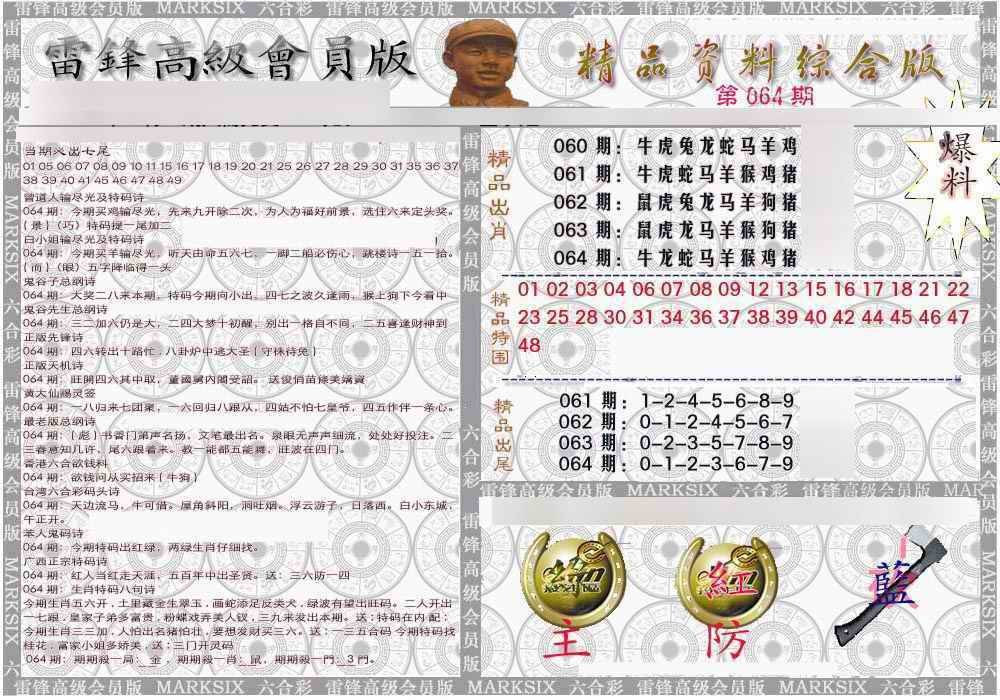 雷锋高级会员版 MARKSIX 六合彩 雷锋高级会员版 MARKSIX 六合彩 雷锋高级会员版 MARKSIX 六合彩
雷鋒高級會員版
精品资料综合版
第064期
当期火出七尾
01 05 06 07 08 09 10 11 15 16 17 18 19 20 21 25 26 27 28 29 30 31 35 36 37
38 39 40 41 45 46 47 48 49
曾道人输尽光及特码诗
064期：今期买鸡输尽光，先来九开除二次，为人为福好前景，选住六来定头奖。
{景}（巧）特码提一尾加二
白小姐输尽光及特码诗
064期：今期买羊输尽光，听天由命五六七，一脚二船必伤心，跳楼诗一五一拾。
{而}（眼）五字降临得一头
鬼谷子总纲诗
064期：大奖二八来本期，特码今期向小出，四七之波久逢雨，猴上狗下今看中
鬼谷先生总纲诗
064期：三二加六仍是大，二四大梦十初醒，别出一格自不同，二五喜逢财神到
正版先锋诗
064期：四六转出十路忙，八卦炉中逃大圣{守株待兔}
正版天机诗
064期：旺開四六其中取，董國舅内閣受詔。送俊俏苗條美嬌資
黄大仙赐灵签
064期：一八归来七团聚，一六回归八跟从，四姑不怕七皇爷，四五作伴一条心。
最老版总纲诗
064期：{彪}书香门第声名扬，文笔最出名。泉眼无声声细流，处处好投注。二
三春意知几许，尾六跟着来。教一能都五能舞，旺波在四门。
香港六合欲钱料
064期：欲钱问从实招来{牛狗}
台湾六合彩码头诗
064期：天边流马，牛可惜。屋角斜阳，洞吐烟。浮云游子，日落西。白小东城，
午正开。
苯人鬼码诗
064期：今期特码出红绿，两绿生肖仔细找。
广西正宗特码诗
064期：红人当红走天涯，五百年中出圣贤。送：三六防一四
064期：生肖特码八句诗
今期生肖五六开，土里藏金生翠玉，画蛇添足反类犬，绿波有望出旺码。二人开出
一七跟，皇家子弟多富贵，粉蝶戏弄美人钗，三九来发出本期。送：特码在内 配：
今期生肖三三加，人怕出名猪怕壮，要想发财买三六。送：一三五合码 今期特码找
桂花，富家小姐多娇美，送：三门开灵码
064期：期期殺一局：金，期期殺一肖：鼠，期期殺一門：3門。
精品出肖
060 期：牛虎兔龙蛇马羊鸡
061 期：牛虎蛇马羊猴鸡猪
062 期：鼠虎兔龙马羊狗猪
063 期：鼠虎龙马羊猴狗猪
064 期：牛龙蛇马羊猴鸡猪
爆料
精品特围
01 02 03 04 06 07 08 09 12 13 15 16 17 18 21 22
23 25 28 30 31 34 36 37 38 39 40 42 44 45 46 47
48
精品出尾
061 期：1-2-4-5-6-8-9
062 期：0-1-2-4-5-6-7
063 期：0-2-3-5-7-8-9
064 期：0-1-2-3-6-7-9
雷锋高级会员版 MARKSIX 六合彩 雷锋高级会员版
紅
藍
主
防
雷锋高级会员版 MARKSIX 六合彩 雷锋高级会员版 MARKSIX 六合彩 雷锋高级会员版 MARKSIX 六合彩